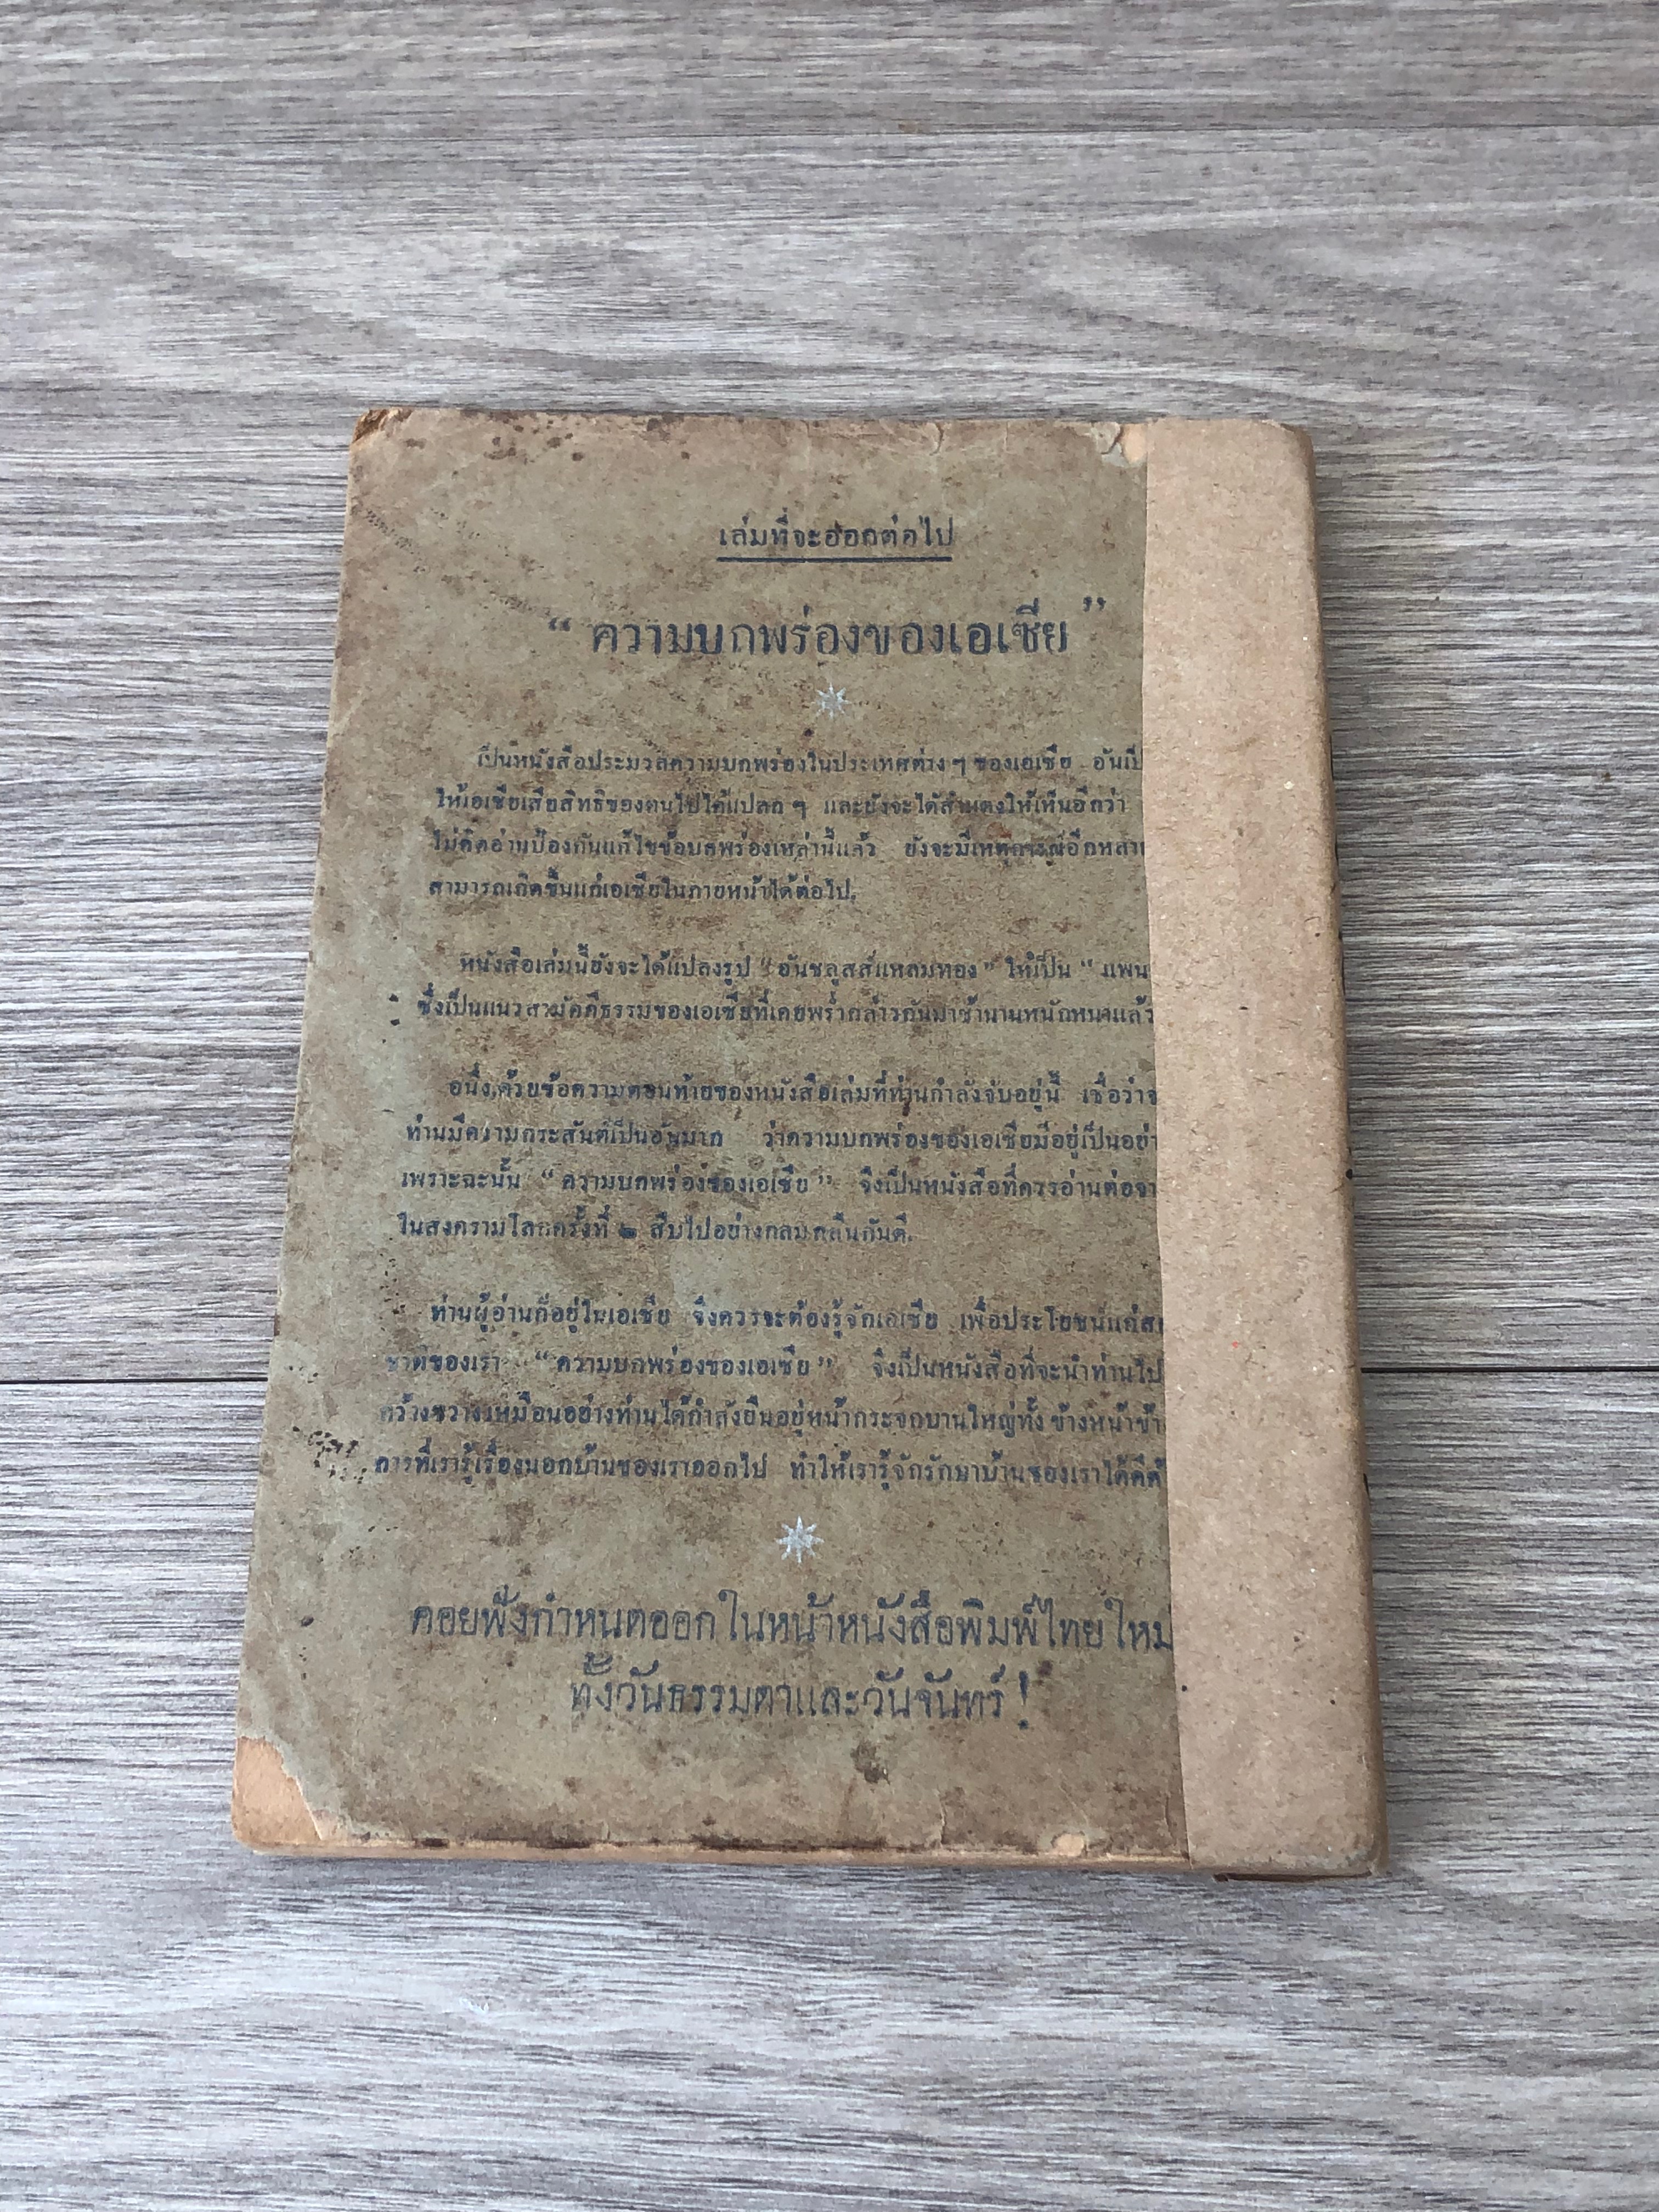 เล่มที่จะออกต่อไป
“ ความบกพร่องของเอเซีย ”
เป็นหนังสือประมวลความบกพร่องในประเทศต่าง ๆ ของเอเซีย อันเป็
ให้เอเซียเสียสิทธิของตนไปได้แปลก ๆ และยังจะได้สำแดงให้เห็นอีกว่า
ไม่คิดอ่านป้องกันแก้ไขข้อบกพร่องเหล่านี้แล้ว ยังจะมีเหตุการณ์อีกหลาย
สามารถเกิดขึ้นแก่เอเซียในภายหน้าได้ต่อไป.
หนังสือเล่มนี้ยังจะได้แปลงรูป “ อันชลุสส์แหลมทอง ” ให้เป็น “ แพน
ซึ่งเป็นแนวสามัคคีธรรมของเอเซียที่เคยพร่ำกล่าวกันมาช้านานหนักหนาแล้ว
อนึ่งด้วยข้อความตอนท้ายของหนังสือเล่มที่ท่านกำลังจับอยู่นี้ เชื่อว่าจ
ท่านมีความกระสันต์เป็นอันมาก ว่าความบกพร่องของเอเซียมีอยู่เป็นอย่า
เพราะฉะนั้น “ ความบกพร่องของเอเซีย ” จึงเป็นหนังสือที่ควรอ่านต่อจา
ในสงครามโลกครั้งที่ ๒ สืบไปอย่างกลมกลืนกันดี.
ท่านผู้อ่านก็อยู่ในเอเซีย จึงควรจะต้องรู้จักเอเซีย เพื่อประโยชน์แก่ส
ชาติของเรา “ ความบกพร่องของเอเซีย ” จึงเป็นหนังสือที่จะนำท่านไป
กว้างขวางเหมือนอย่างท่านได้กำลังยืนอยู่หน้ากระจกบานใหญ่ทั้งข้างหน้าข้า
การที่เรารู้เรื่องนอกบ้านของเราออกไป ทำให้เรารู้จักรักษาบ้านของเราได้ดีด้
คอยฟังกำหนดออกในหน้าหนังสือพิมพ์ไทยใหม
ทั้งวันธรรมดาและวันจันทร์ !